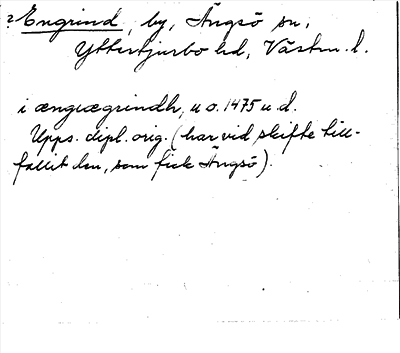 ? Engrind, by, Ängsö sn,
Yttertjurbo hd, Västm. l.
i ængiægrindh, u o. 1475 u. d.
Upps. dipl. orig. (har vid skifte till-
fallit den, som fick Ängsö).